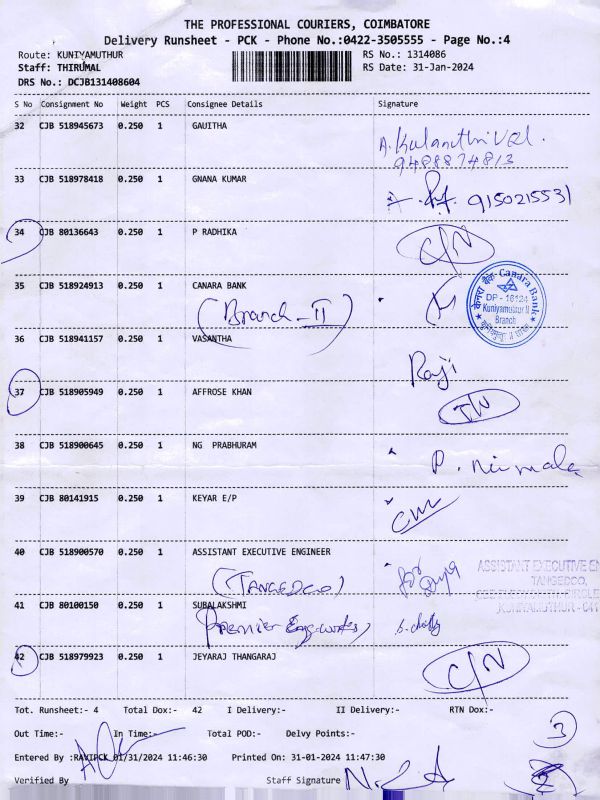 THE PROFESSIONAL COURIERS, COIMBATORE
Delivery Runsheet - PCK - Phone No.:0422-3505555 - Page No.:4
Route: KUNIYAMUTHUR RS No.: 1314086
Staff: THIRUMAL RS Date: 31-Jan-2024
DRS No.: DCJB131408604
S No Consignment No Weight PCS Consignee Details Signature
32 CJB 518945673 0.250 1 GAUITHA
9488874813
33 CJB 518978418 0.250 1 GNANA KUMAR
9150215531
34 CJB 80136643 0.250 1 P RADHIKA
C/N
35 CJB 518924913 0.250 1 CANARA BANK
(Branch - II)
केनरा बैंक Canara Bank
DP - 16124
Kuniyamuthur II
Branch
36 CJB 518941157 0.250 1 VASANTHA
Raji
37 CJB 518905949 0.250 1 AFFROSE KHAN
38 CJB 518900645 0.250 1 NG PRABHURAM
P. Nirmala
39 CJB 80141915 0.250 1 KEYAR E/P
40 CJB 518900570 0.250 1 ASSISTANT EXECUTIVE ENGINEER
(TANGEDCO)
ASSISTANT EXECUTIVE EN
TANGEDCO,
KUNIYAMUTHUR - 641
41 CJB 80100150 0.250 1 SUBALAKSHMI
(Premier Engg works)
42 CJB 518979923 0.250 1 JEYARAJ THANGARAJ
C/N
Tot. Runsheet:- 4 Total Dox:- 42 I Delivery:- II Delivery:- RTN Dox:-
Out Time:- In Time:- Total POD:- Delvy Points:-
3
Entered By :RAVIPCK 01/31/2024 11:46:30 Printed On: 31-01-2024 11:47:30
Verified By Staff Signature